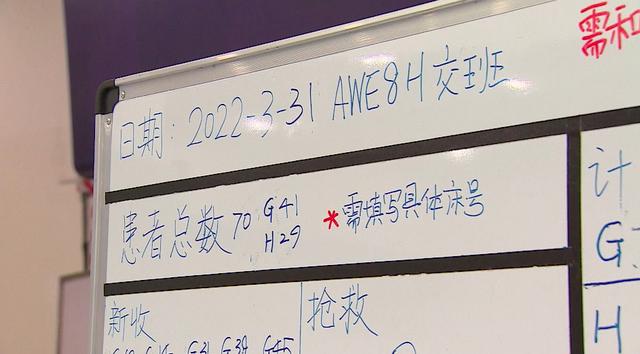 需和
日期: 2022-3-31 AWE8H 交班
患者总数 70 G41 H29 *需填写具体床号
计
G:
H
新收
抢救
G31 G39 G45